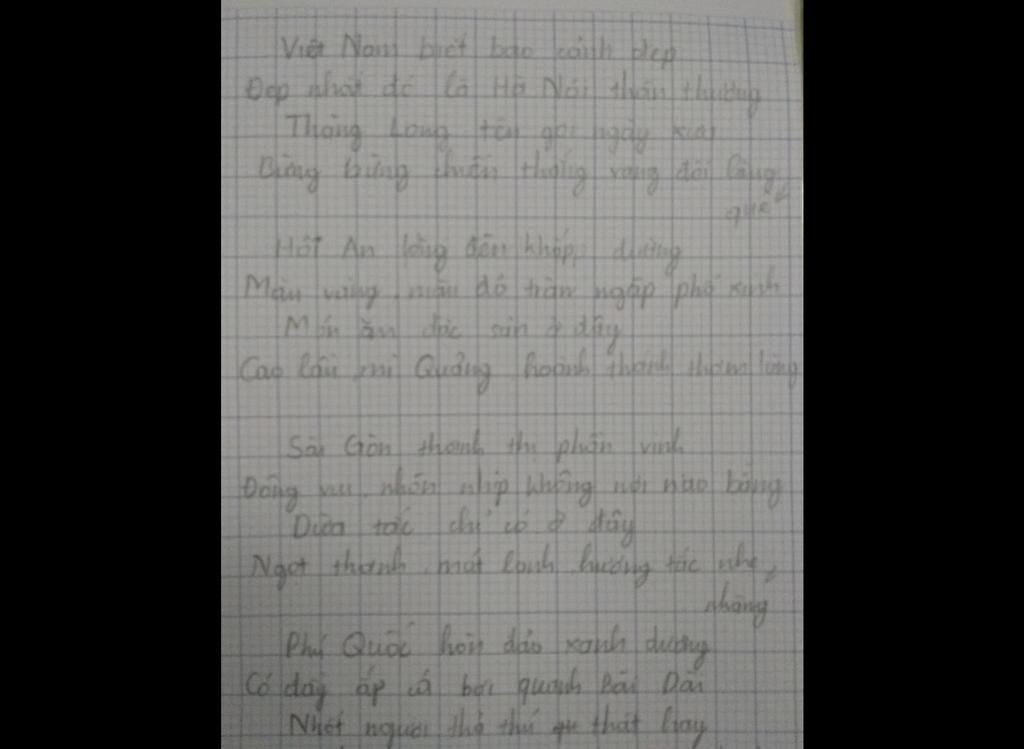 Việt Nam biết bao cảnh đẹp
Đẹp nhất đó là Hà Nội thân thương
Thăng Long tên gọi ngày xưa
Bừng bừng chiến thắng vang dội làng
quê
Hội An lồng đèn khắp đường
Màu vàng, màu đỏ tràn ngập phố xinh
Món ăn đặc sản ở đây
Cao lầu, mì Quảng, hoành thánh thơm lừng
Sài Gòn thành thị phồn vinh
Đông vui, nhộn nhịp không nơi nào bằng
Dừa tắc chỉ có ở đây
Ngọt thanh, mát lạnh, hương tắc nhẹ
nhàng
Phú Quốc hòn đảo xanh dương
Có đầy ắp cá bơi quanh Bãi Dài
Nhốt người thả thú thật hay